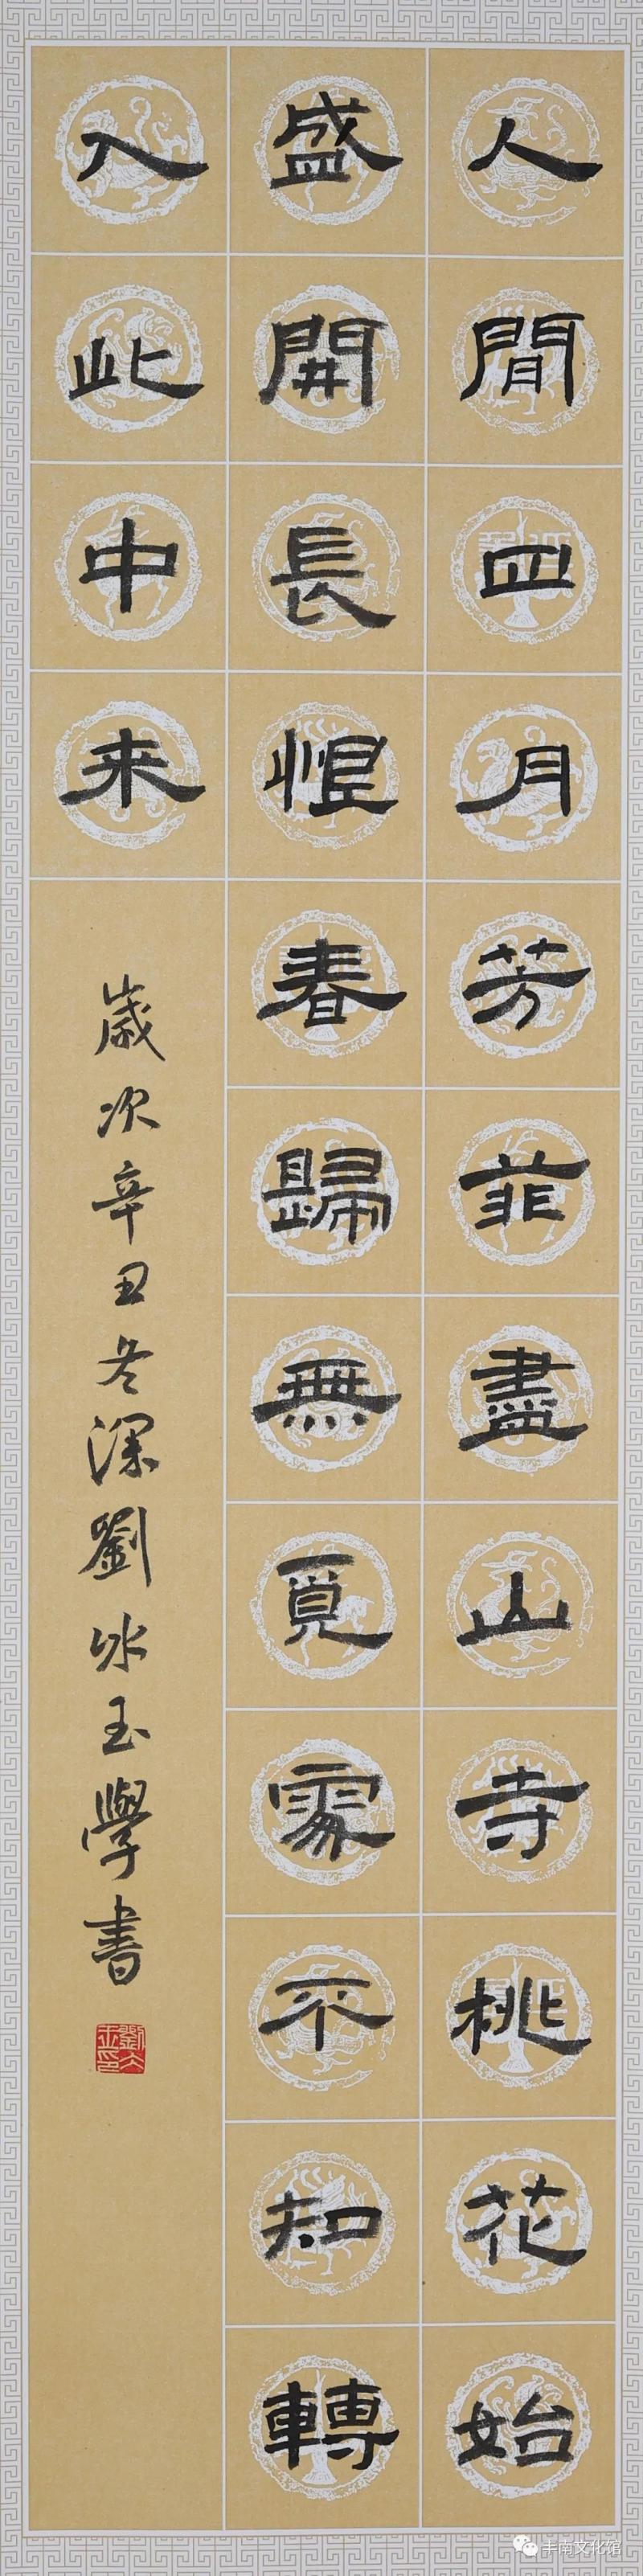 人間四月芳菲盡山寺桃花始
盛開長恨春歸無覓處不知轉
入此中来
歲次辛丑冬深劉冰玉學書
丰南文化馆